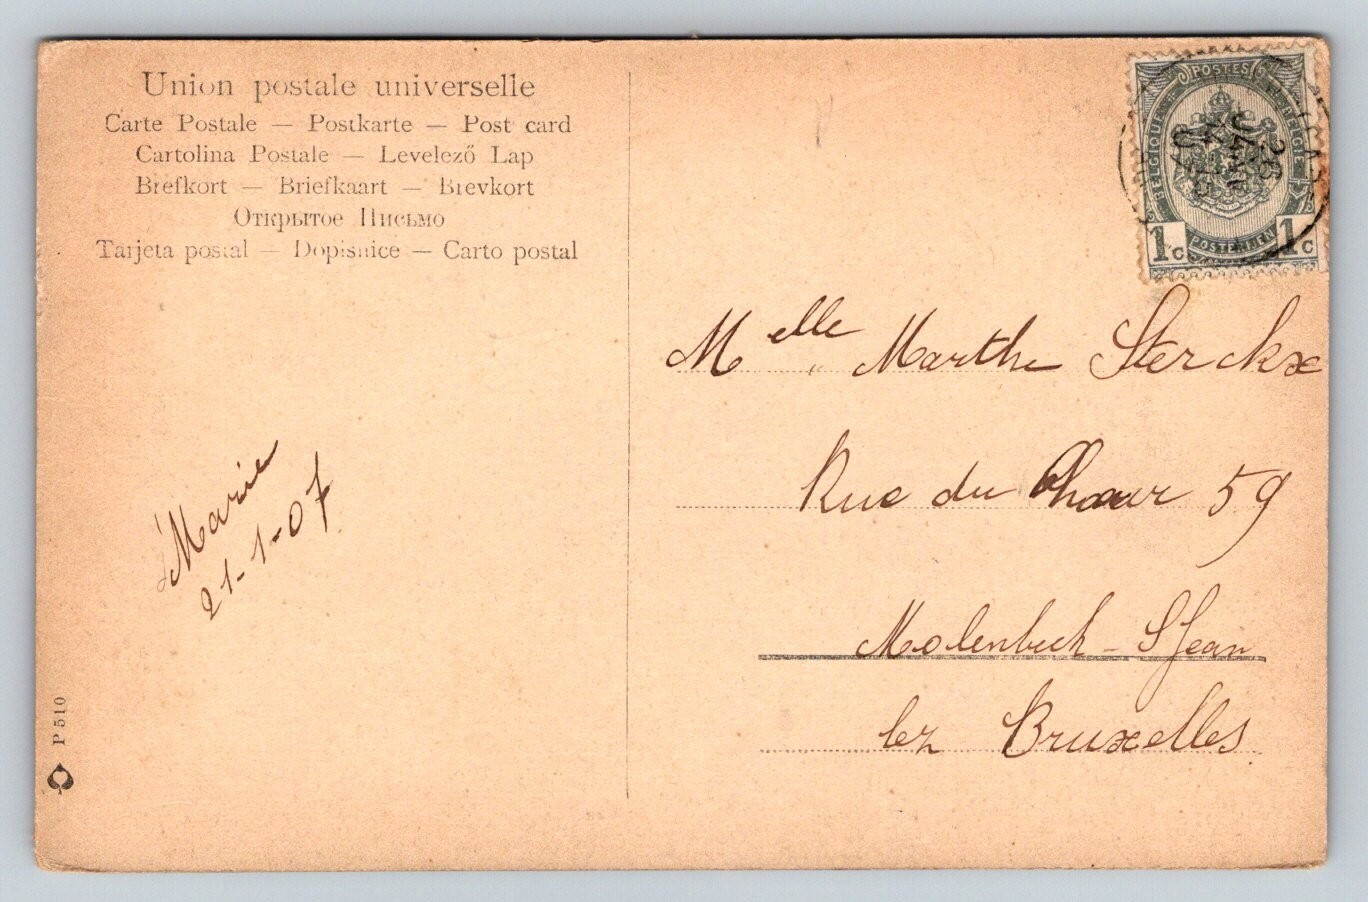 Union postale universelle
Carte Postale — Postkarte — Post card
Cartolina Postale — Levelező Lap
Brefkort — Briefkaart — Brevkort
Открытое Письмо
Tarjeta postal — Dopisnice — Carto postal
POSTES
BELGIQUE
BELGIË
1c POSTERIJEN 1c
Melle Marthe Sterckx
Rue du 59
Molenbeek - St Jean
lez Bruxelles
Marie
21-1-07
P 510